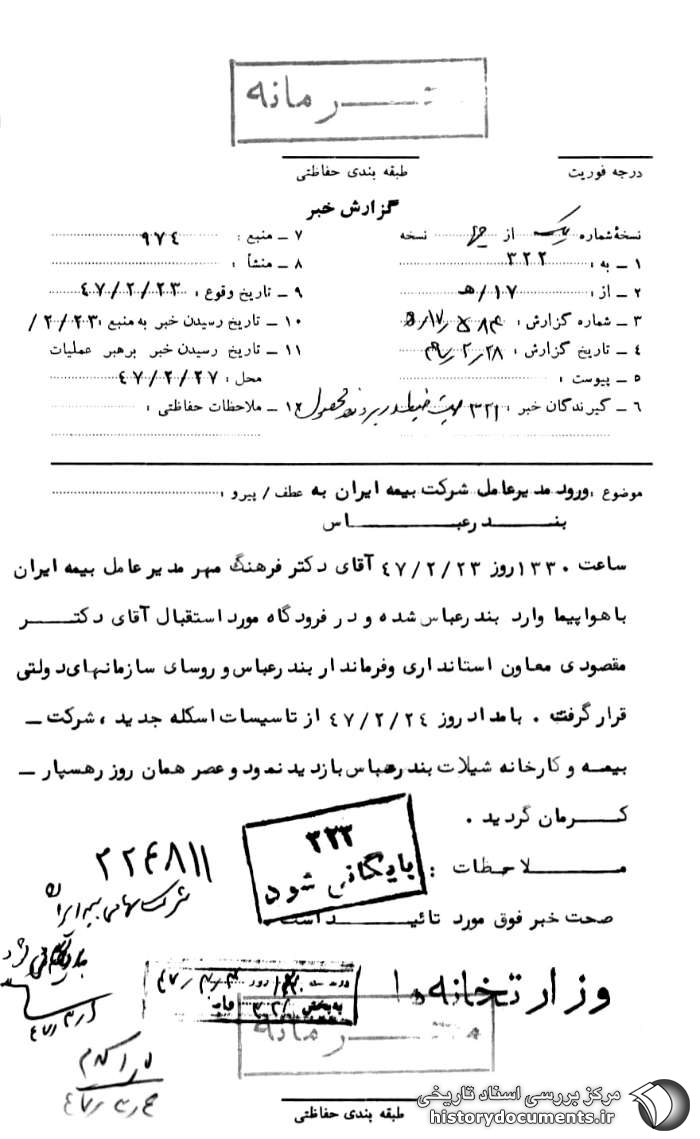 محرمانه
درجه فوریت
طبقه بندی حفاظتی
گزارش خبر
نسخهٔ شماره یک از نسخه
۱ ـ به : ۳۲۲
۲ ـ از : ۱۷/هـ
۳ ـ شماره گزارش :
۴ ـ تاریخ گزارش :
۵ ـ پیوست :
۶ ـ گیرندگان خبر : ۳۲۱
۷ ـ منبع : ۹۷۴
۸ ـ منشأ :
۹ ـ تاریخ وقوع : ۴۷/۲/۲۳
۱۰ ـ تاریخ رسیدن خبر به منبع : ۲/۲۳/
۱۱ ـ تاریخ رسیدن خبر برهبر عملیات
محل : ۴۷/۲/۲۷
۱۲ ـ ملاحظات حفاظتی :
موضوع : ورود مدیرعامل شرکت بیمه ایران به عطف / پیرو :
بنــدرعبــاس
ساعت ۱۳۳۰ روز ۴۷/۲/۲۳ آقای دکتر فرهنگ مهر مدیر عامل بیمه ایران
با هواپیما وارد بندرعباس شده و در فرودگاه مورد استقبال آقای دکتــر
مقصودی معاون استانداری وفرماندار بندرعباس و روسای سازمانهای دولتی
قرار گرفت . بامداد روز ۴۷/۲/۲۴ از تاسیسات اسکله جدید ، شرکت ـ
بیمه و کارخانه شیلات بندرعباس بازدید نمود و عصر همان روز رهسپار ـ
کــرمان گردید .
مــلاحظات :
۳۳۳
بایگانی شود
صحت خبر فوق مورد تائیــد است .
۲۲۴۸۱۱
شرکت سهامی بیمه ایران
بایگانی شود
وزارتخانه ها
محرمانه
طبقه بندی حفاظتی
مرکز بررسی اسناد تاریخی
historydocuments.ir